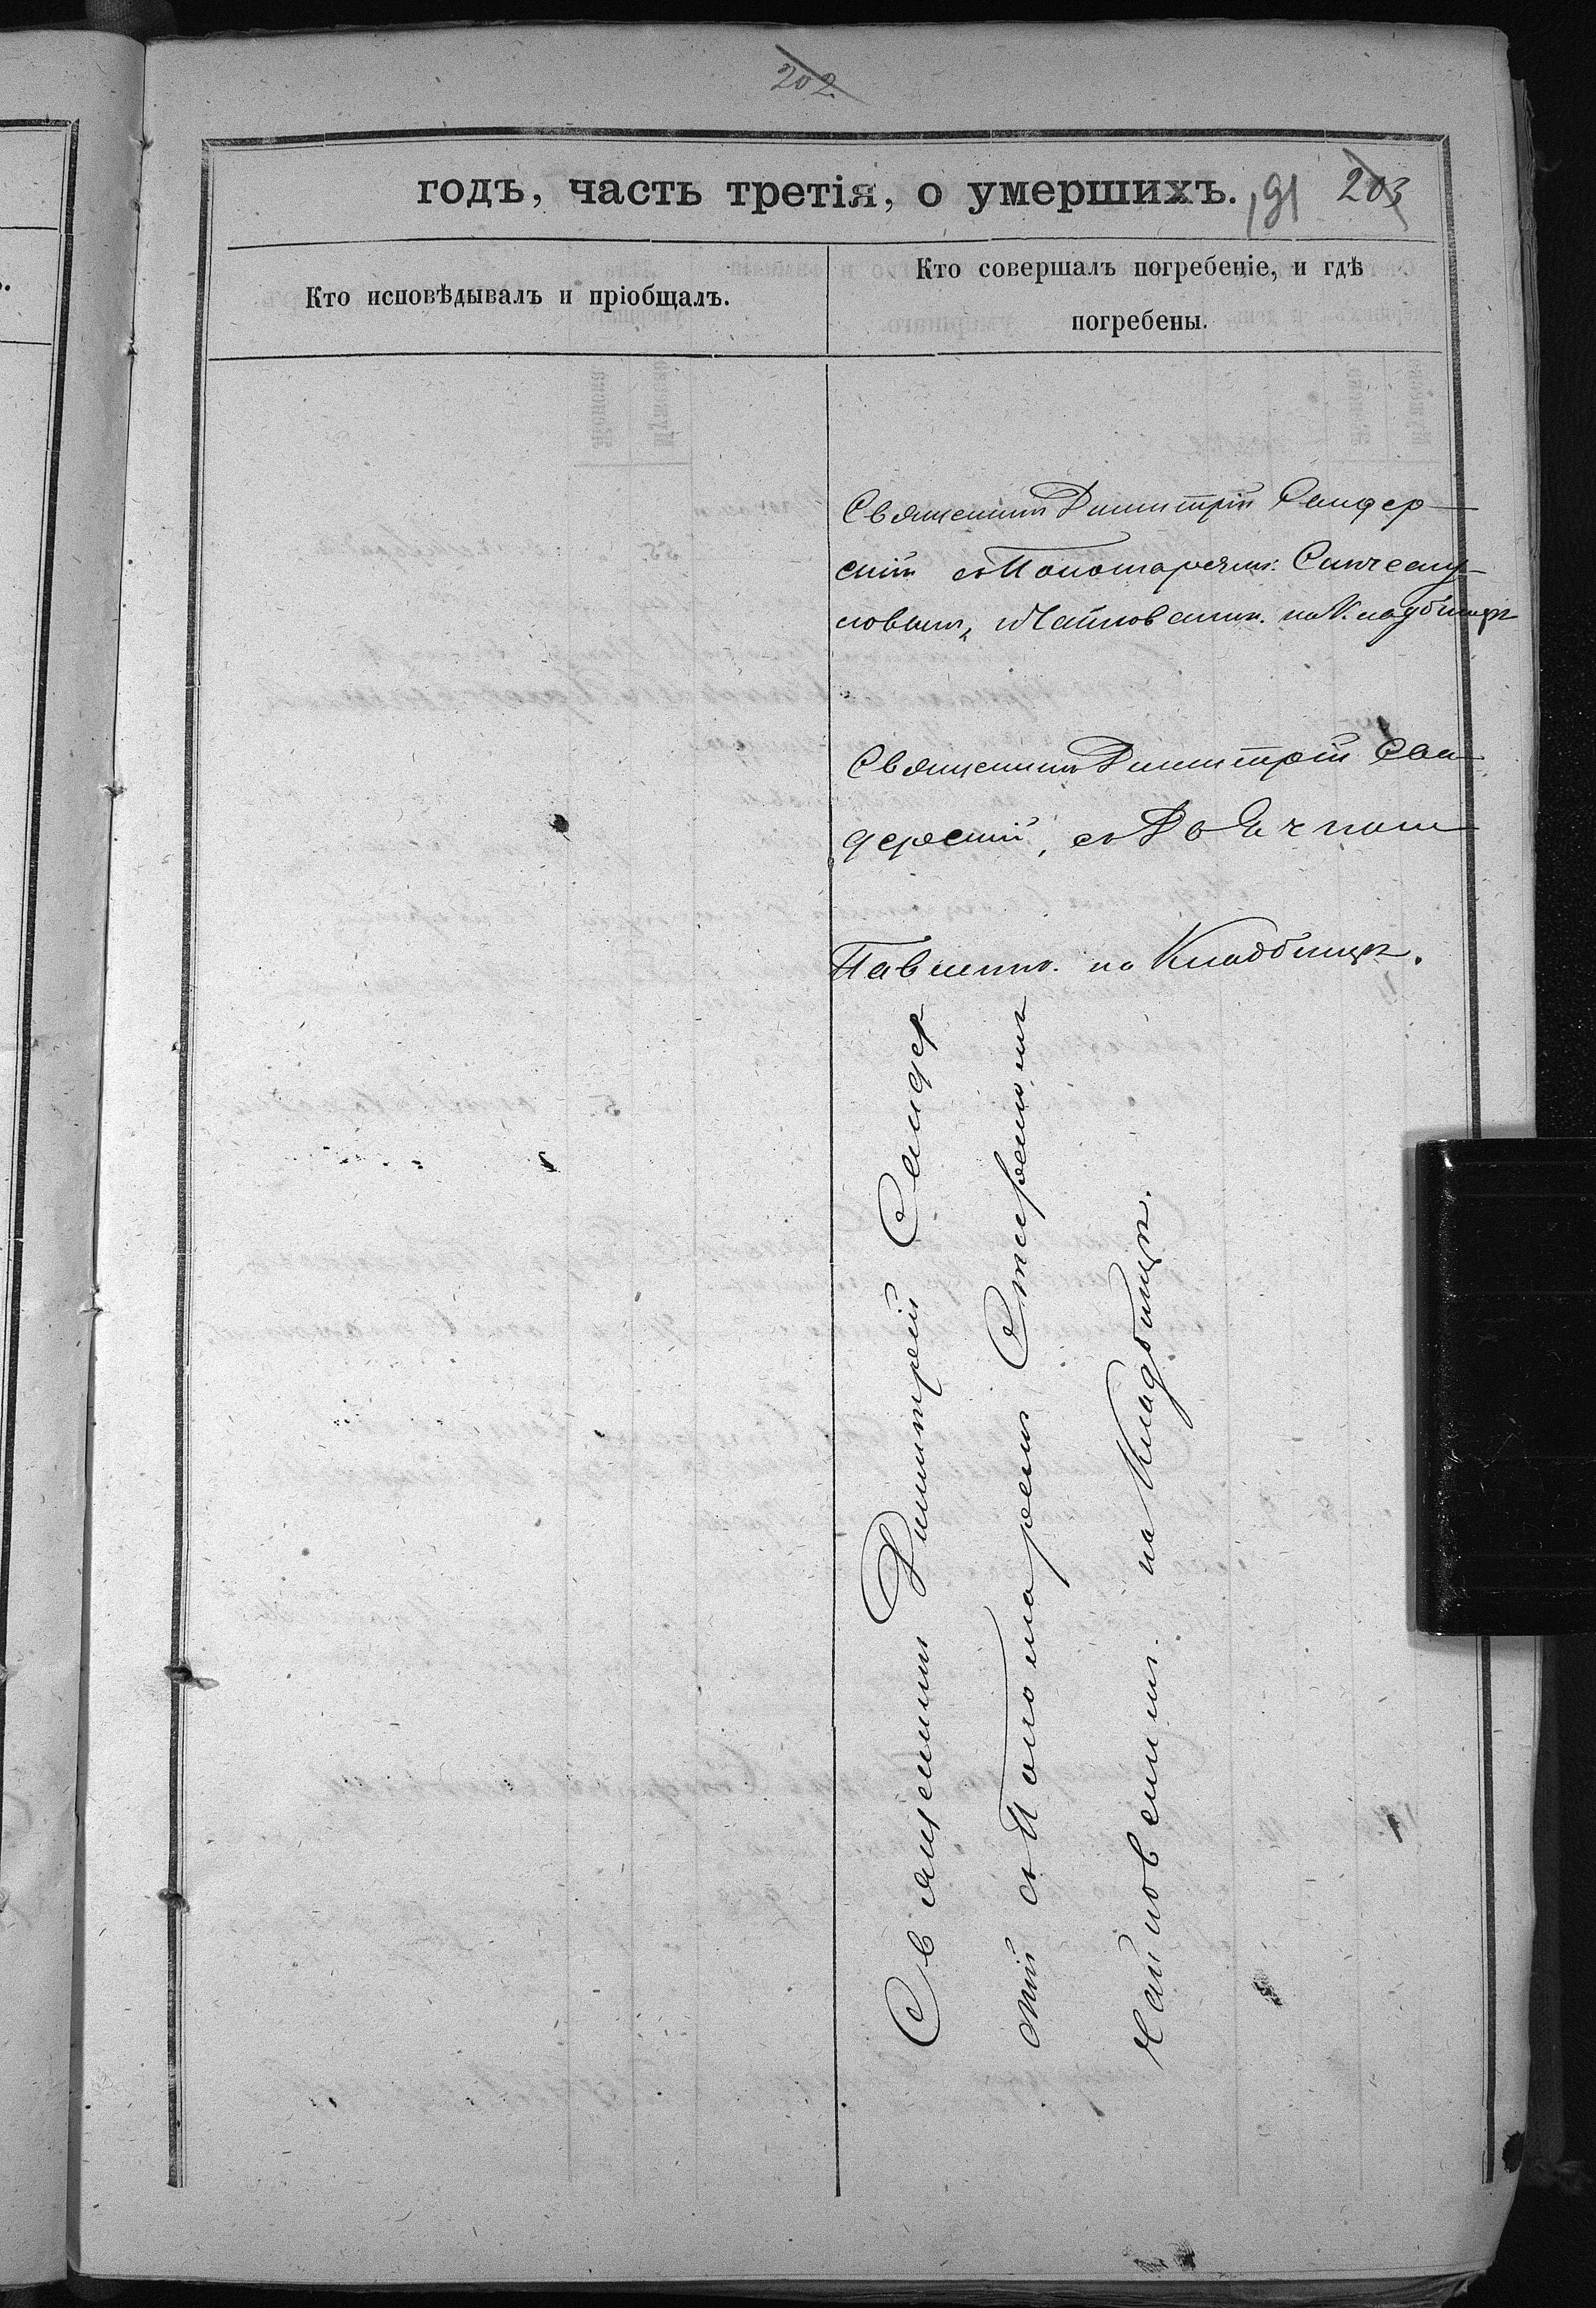 202
годъ, часть третія, о умершихъ.
191 203
Кто исповѣдывалъ и пріобщалъ.
Кто совершалъ погребеніе, и гдѣ
погребены.
Священникъ Димитрій Сандер-
скій съ Пономаремъ
Чайковскимъ. на Кладбищѣ
Священникъ Димитрій Сан-
дерскій, съ
на Кладбищѣ.
Священникъ Димитрій Сандер
скій съ Пономаремъ
Чайковскимъ. на Кладбищѣ.